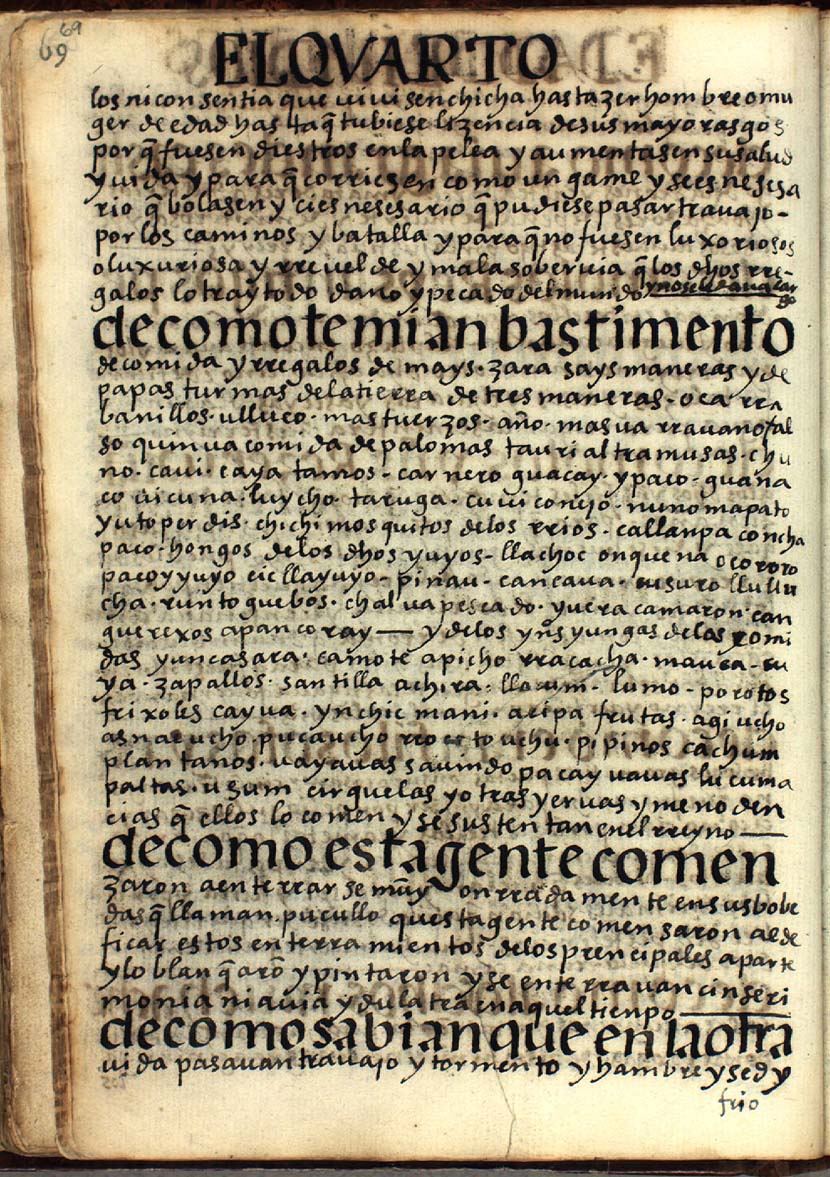 69
69
EL QVARTO
los ni consentia que uiuisen chicha hasta zer hombre o mu
ger de edad hasta q̃ tubiese lizencia de sus mayoras gos
por q̃ fuesen diestros en la pelea y aumentasen su salud
y uida y para q̃ corriesen como un game y se es nesesa
rio q̃ bolasen y ci es nesesario q̃ pudiese pasar trauajo -
por los caminos y batalla y para q̃ no fuesen luxoriosos
o luxuriosa y rreuelde y mala soberuia q̃ los dhos rre-
galos lo tray todo daño y pecado del mundo y no se le daua lar
go
de como temian bastimento
de comida y rregalos de mays . zara says maneras y de
papas turmas de la tierra de tres maneras . oca . rra
banillos . ulluco . mastuerzos . año . masua rrauano fal
so quinua comida de palomas tauri altramusas . chu
no . caui . caya tamos . carnero guacay . y paco . guana
co uicuna . luycho . taruga . cuui conejo . nunoma pato
yuto perdis . chichi mosquitos de los rrios . callanpa concha
paco . hongos de los dhos yuyos - llachoc onquena ocororo
paco yyuyo cicllayuyo - pinau . cancaua . susuro llullu
cha . runto guebos . chalua pescado . yuera camaron . can
guerexos apancoray — y de los yn̄s yungas de las comi
das yuncasara . camote apicho rracacha . mauca - su
ya . zapallos . santilla achira . llacum . lumo . porotos
frixoles cayua . ynchic mani . aripa frutas . agi ucho
asnac ucho . pucaucho rrocto uchu . pipinos cachum
plantanos . uayauas sauindo pacay uauas lucuma
paltas . usum cirquelas y otras yeruas y menoden
cias q̃ ellos lo comen y se sustentan en el rreyno —
de como esta gente comen
zaron a enterrarse muy onrradamente en sus bobe
das q̃ llaman . pucullo questa gente comensaron a ede
ficar estos enterramientos de los prencipales aparte
y lo blanq̃aro y pintaron y se enterrauan cin seri
monia ni auia ydulatra en aquel tienpo —
de como sabian que en la otra
uida pasauan trauajo y tormento y hambre y sed y
frio